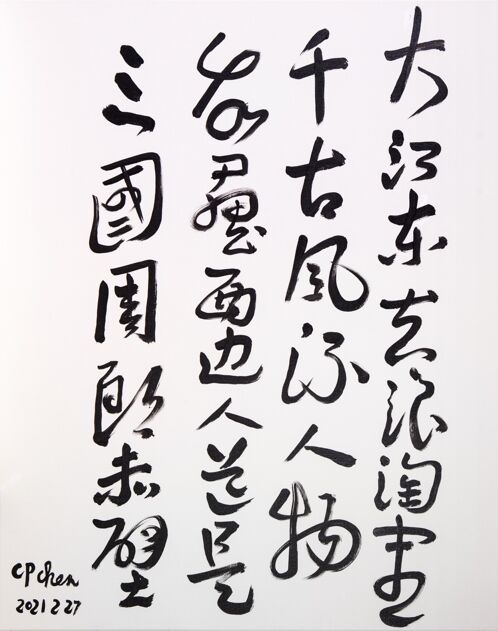 大江东去浪淘盡
千古風流人物
故壘西边人道是
三國周郎赤壁
CP Chen
2021 2 27